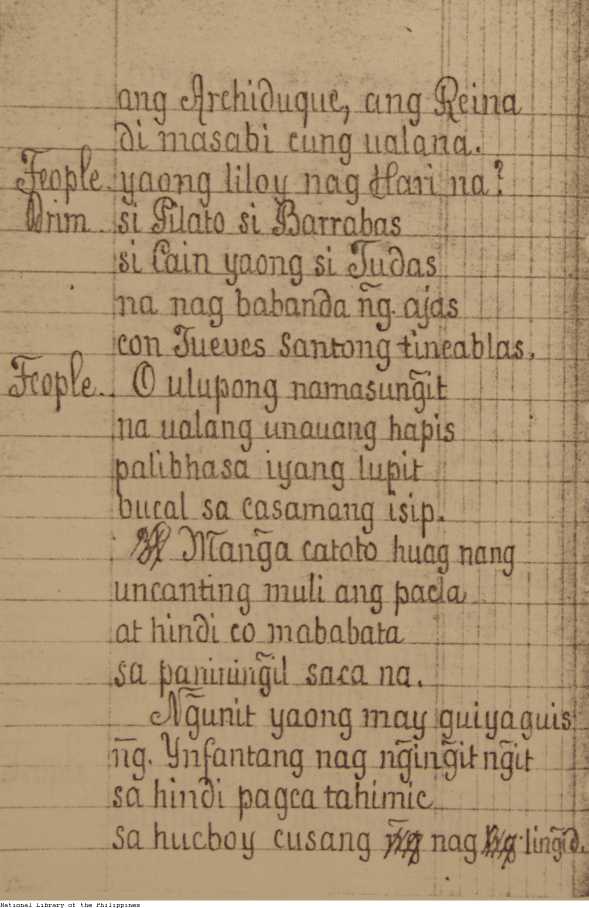 ang Archiduque, ang Reina
di masabi cung ualana.
Feople. yaong liloy nag Hari na?
Orim. si Pilato si Barrabas
si Cain yaong si Judas
na nag babanda ñg. ajas
con Jueves Santong tineablas.
Feople. O ulupong namasung̃it
na ualang unauang hapis
palibhasa iyang lupit
bucal sa casamang isip.
Mang̃a catoto huag nang
uncanting muli ang pacla
at hindi co mababata
sa panining̃il saca na.
Ng̃unit yaong may guiyaguis
ñg. Ynfantang nag ng̃ing̃itng̃it
sa hindi pagca tahimic
sa hucboy cusang nag ling̃id.
National Library of the Philippines